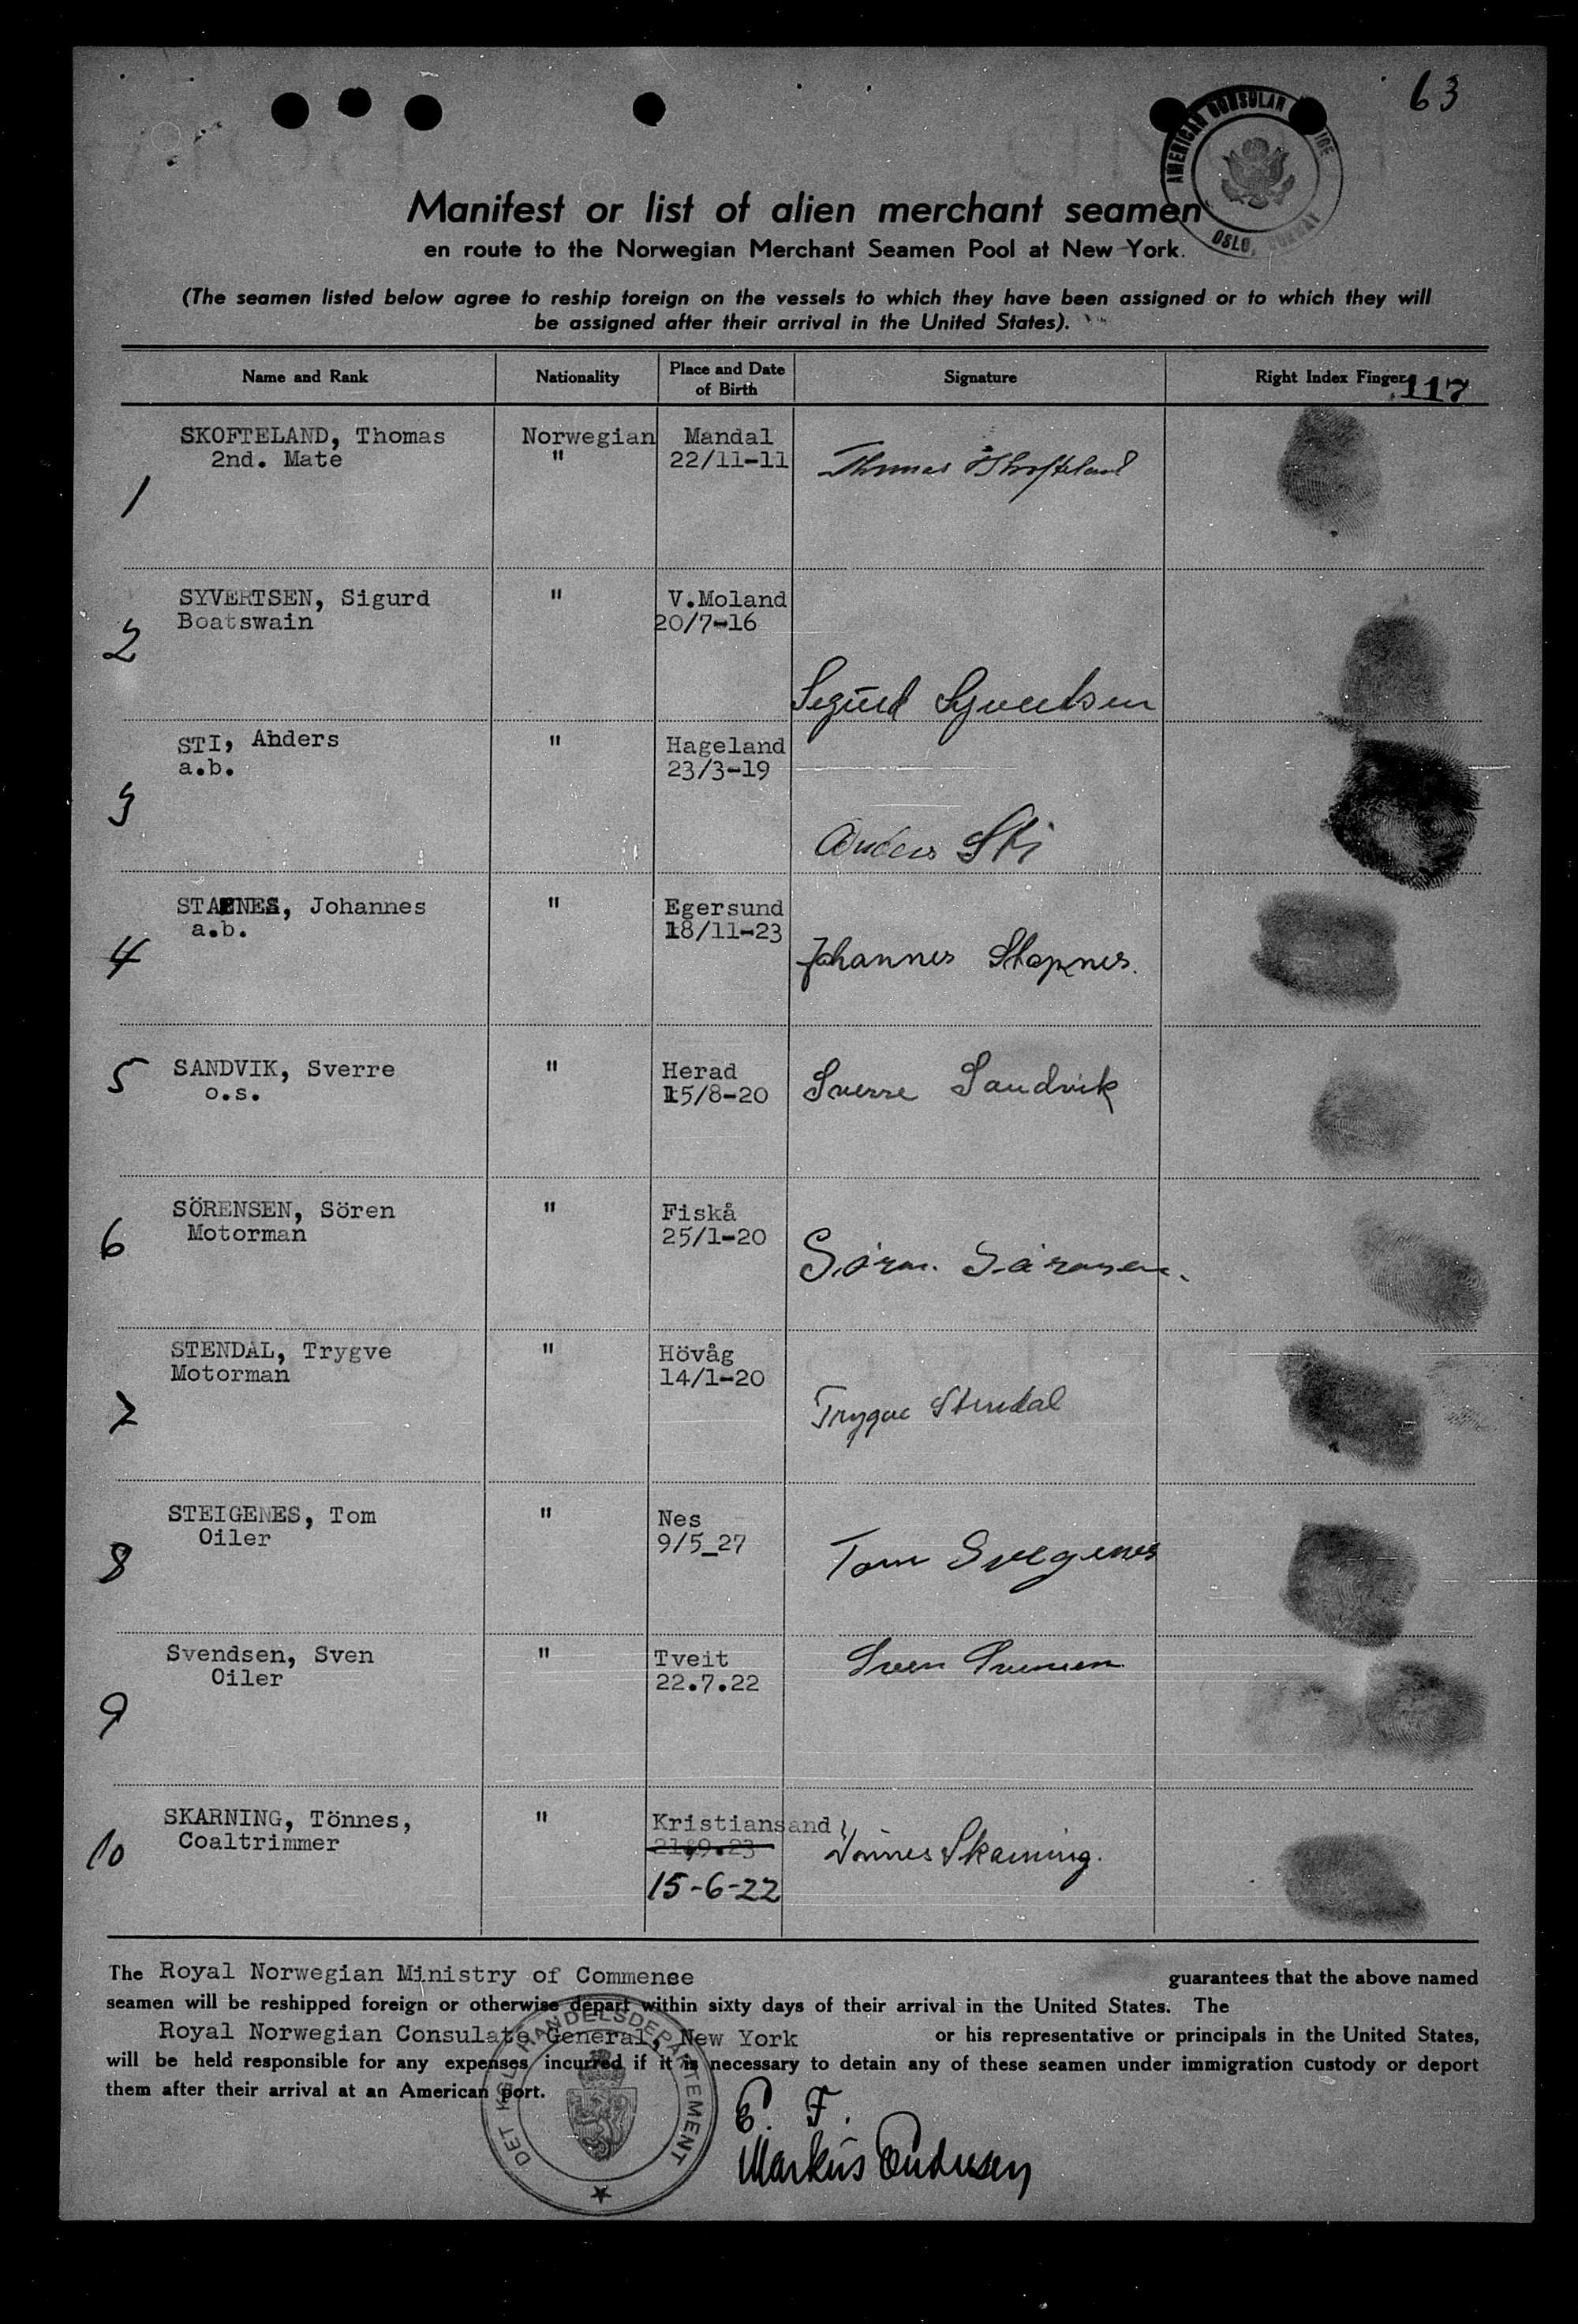 63
AMERICAN CONSULAR
OSLO, NORWAY
Manifest or list of alien merchant seamen
en route to the Norwegian Merchant Seamen Pool at New York.
(The seamen listed below agree to reship foreign on the vessels to which they have been assigned or to which they will
be assigned after their arrival in the United States).
Name and Rank Nationality Place and Date of Birth Signature Right Index Finger 117
1 SKOFTELAND, Thomas Norwegian Mandal
2nd. Mate " 22/11-11 Thomas Skofteland
2 SYVERTSEN, Sigurd " V.Moland
Boatswain 20/7-16
Sigurd Syvertsen
3 STI, Anders " Hageland
a.b. 23/3-19
Anders Sti
4 Johannes " Egersund
a.b. 18/11-23
Johannes Stapnes.
5 SANDVIK, Sverre " Herad Sverre Sandvik
o.s. 15/8-20
6 SÖRENSEN, Sören " Fiskå
Motorman 25/1-20
Sören Sörensen.
7 STENDAL, Trygve " Hövåg
Motorman 14/1-20
Trygve Stendal
8 STEIGENES, Tom " Nes
Oiler 9/5_27
Tom Steigenes
9 Svendsen, Sven " Tveit
Oiler 22.7.22
Sven
10 SKARNING, Tönnes, " Kristiansand
Coaltrimmer 21.9.23 Tönnes Skarning.
15-6-22
The Royal Norwegian Ministry of Commense guarantees that the above named
seamen will be reshipped foreign or otherwise depart within sixty days of their arrival in the United States. The
Royal Norwegian Consulate General, New York or his representative or principals in the United States,
will be held responsible for any expenses incurred if it is necessary to detain any of these seamen under immigration custody or deport
them after their arrival at an American port.
DET KGL. HANDELSDEPARTEMENT
E. F.
Markus Andresen